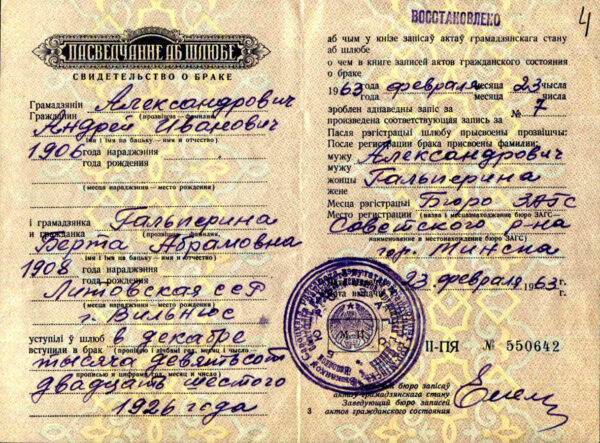 ПАСВЕДЧАННЕ АБ ШЛЮБЕ
СВИДЕТЕЛЬСТВО О БРАКЕ
Грамадзянін
Гражданин Александрович
(прозвішча - фамилия)
Андрей Иванович
(імя і імя па бацьку - имя и отчество)
1906 года нараджэння
года рождения
(месца нараджэння - место рождения)
і грамадзянка
и гражданка Гальперина
(прозвішча - фамилия)
Берта Абрамовна
(імя і імя па бацьку - имя и отчество)
1908 года нараджэння
года рождения
Литовская ССР
(месца нараджэння - место рождения)
г. Вильнюс
уступілі ў шлюб
вступили в брак в декабре
(пропісью і лічбамі год, месяц і число -
тысяча девятьсот
прописью и цифрами год, месяц и число)
двадцать шестого
1926 года
ВОССТАНОВЛЕНО
4
аб чым у кнізе запісаў актаў грамадзянскага стану
аб шлюбе
о чем в книге записей актов гражданского состояния
о браке
1963 года февраля месяца 23 чысла
года месяца числа
зроблен адпаведны запіс за
произведена соответствующая запись за № 7
Пасля рэгістрацыі шлюбу прысвоены прозвішчы:
После регистрации брака присвоены фамилии:
мужу Александрович
мужу
жонцы Гальперина
жене
Месца рэгістрацыі Бюро ЗАГС
Место регистрации (назва і месцазнаходжанне бюро ЗАГС—
Советского р-на
наименование и местонахождение бюро ЗАГС)
гор. Минска
23 февраля 1963 г.
II-ПЯ № 550642
бюро запісаў
актаў грамадзянскага стану
Заведующий бюро записей
3 актов гражданского состояния